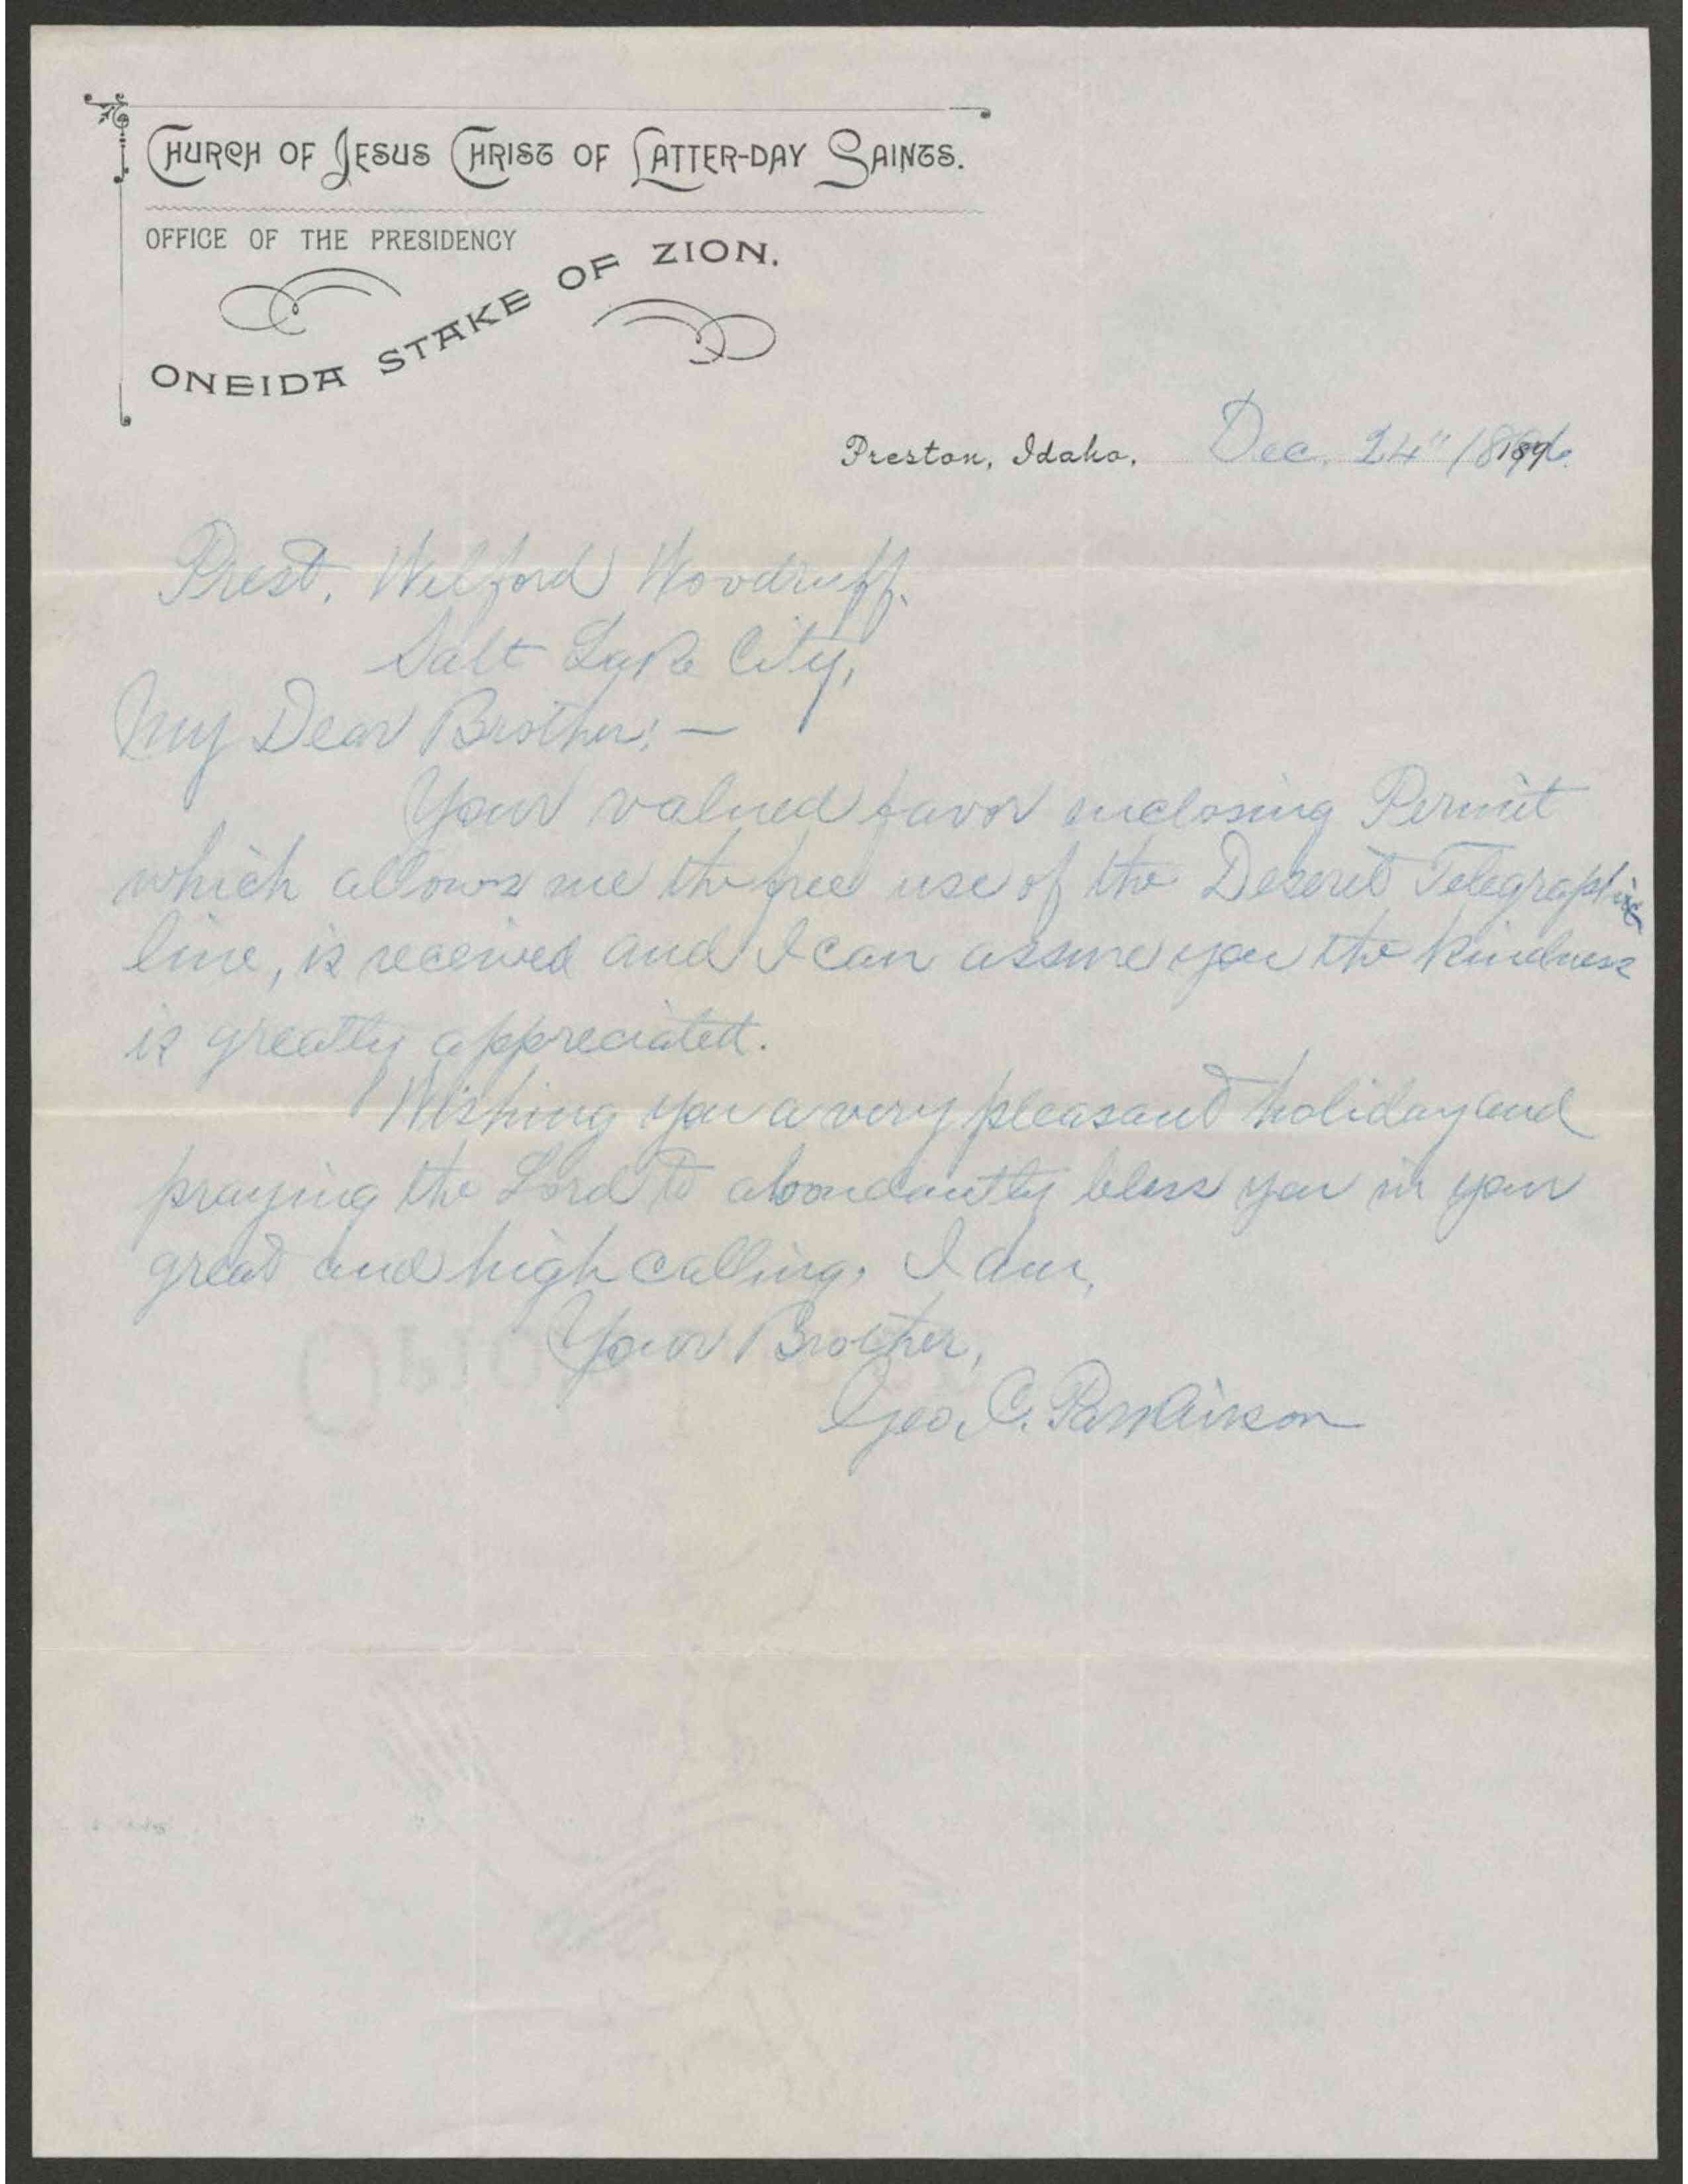 CHURCH OF JESUS CHRIST OF LATTER-DAY SAINTS.
OFFICE OF THE PRESIDENCY
ONEIDA STAKE OF ZION.
Preston, Idaho, Dec. 24" 1896
Prest. Wilford Woodruff.
Salt Lake City,
My Dear Brother:—
Your valued favor enclosing Permit
which allows me the free use of the Deseret Telegraphic
line, is received and I can assure you the kindness
is greatly appreciated.
Wishing you a very pleasant holiday and
praying the Lord to aboundantly bless you in your
great and high calling, I am,
Your Brother,
Geo. C. Parkinson